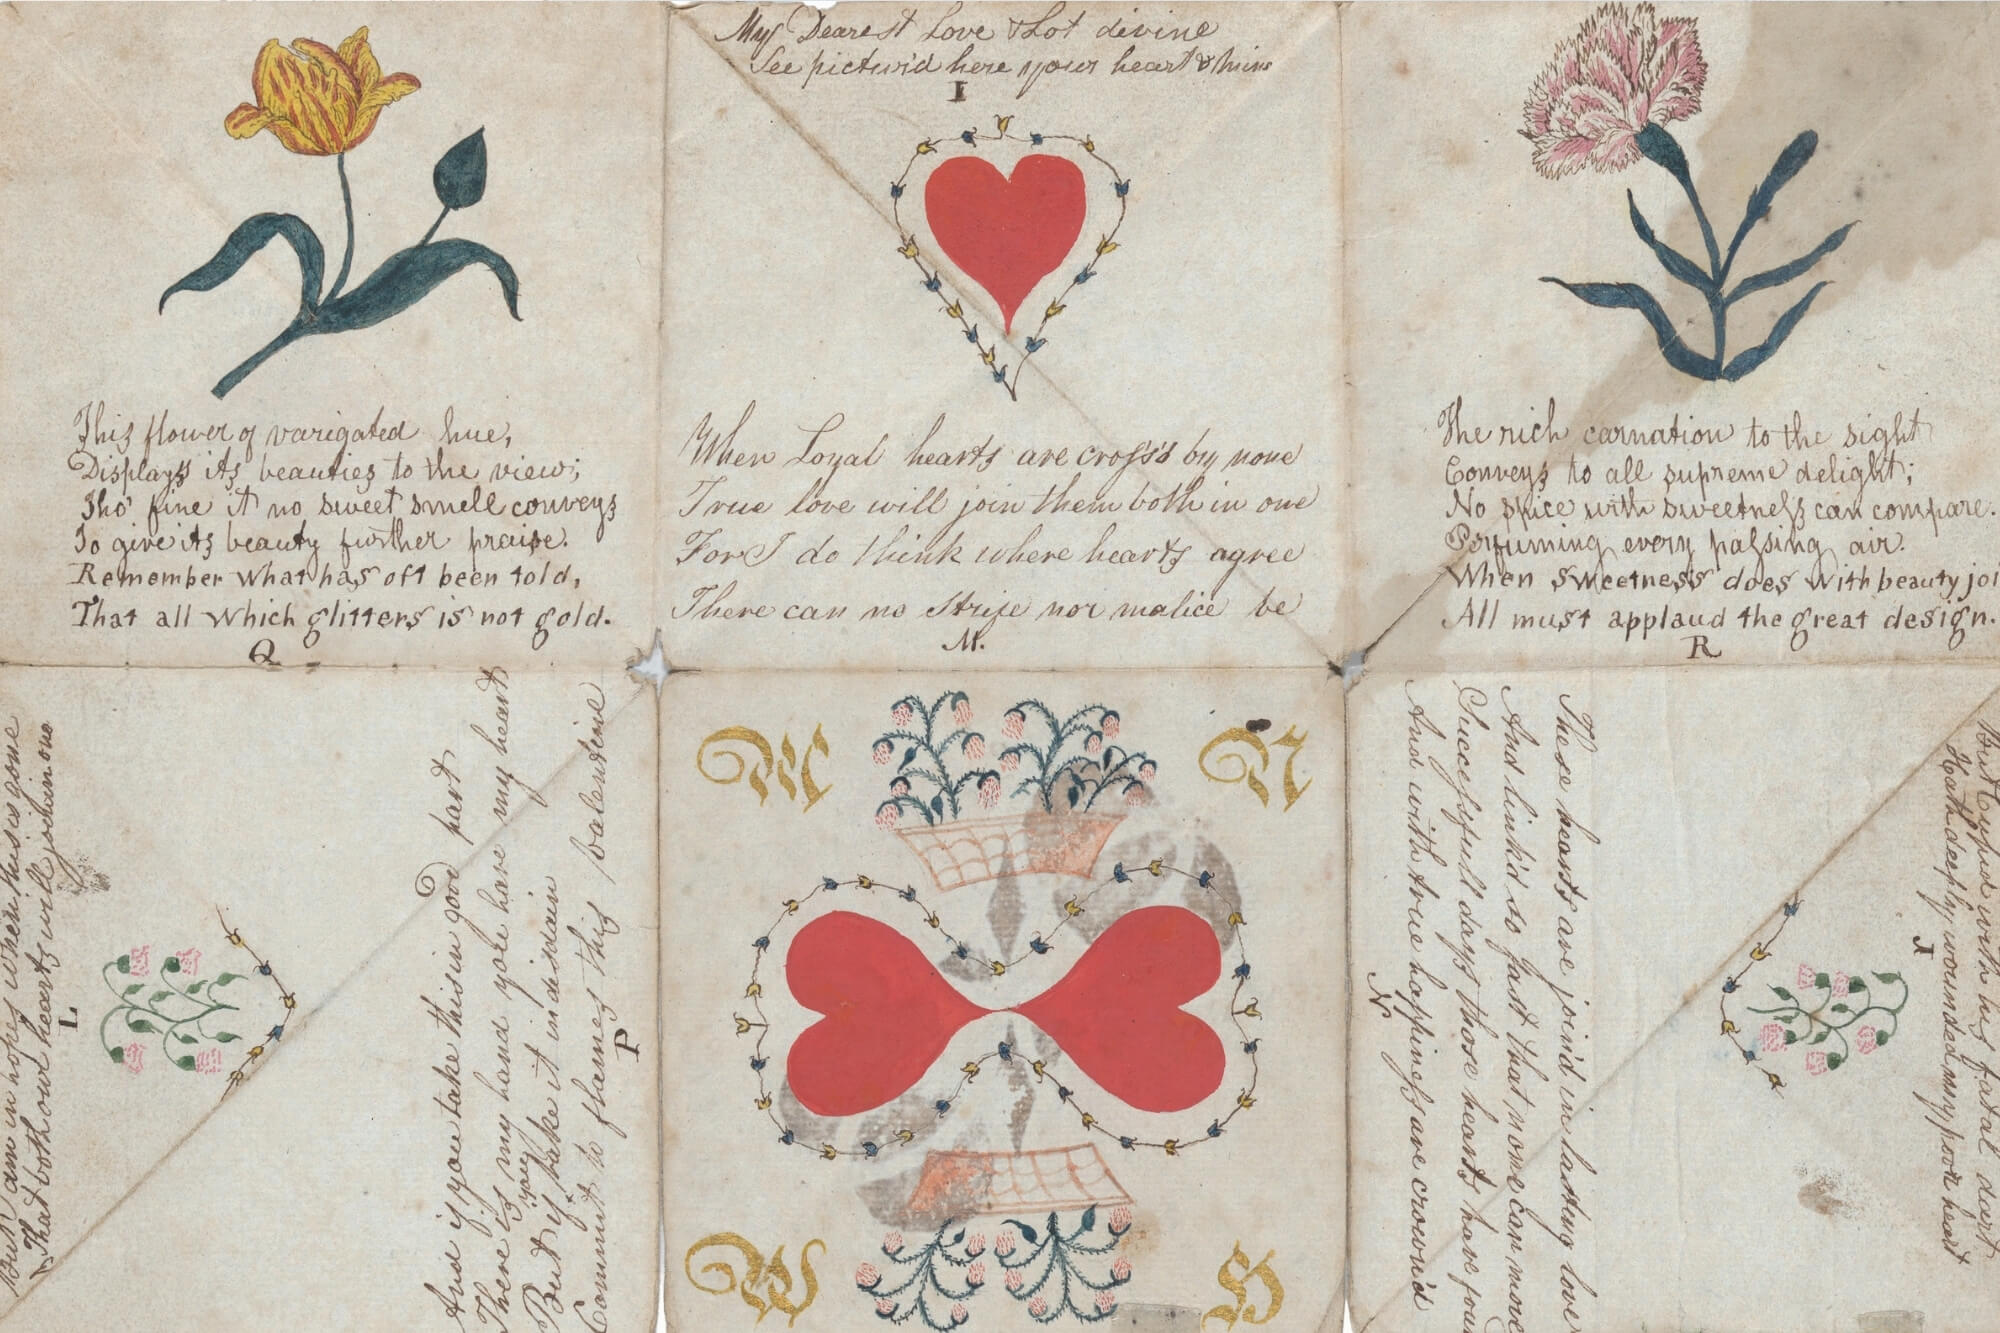 My Dearest Love & Lot divine
See pictur'd here your heart & mine
I
This flower of varigated hue,
Displays its beauties to the view;
Tho' fine it no sweet smell conveys
To give its beauty further praise.
Remember what has oft been told,
That all which glitters is not gold.
Q
When Loyal hearts are cross'd by none
True love will join them both in one
For I do think where hearts agree
There can no strife nor malice be
M.
The rich carnation to the sight
Conveys to all supreme delight;
No spice with sweetness can compare.
Perfuming every passing air.
When sweetness does with beauty joi
All must applaud the great design.
R
But I am in hopes when this is gone
That both our hearts will join in one
L
And if you take this in good part
There is my hand you have my heart
But if you take it in disdain
Commit to flames this valentine
P
M N
W H
These hearts are join'd in lasting love
And link'd so fast that none can move
Successfull days those hearts have foun
And with true happiness are crown'd
N
But Cupid with his fatal dart
Hath deeply wounded my poor heart
J